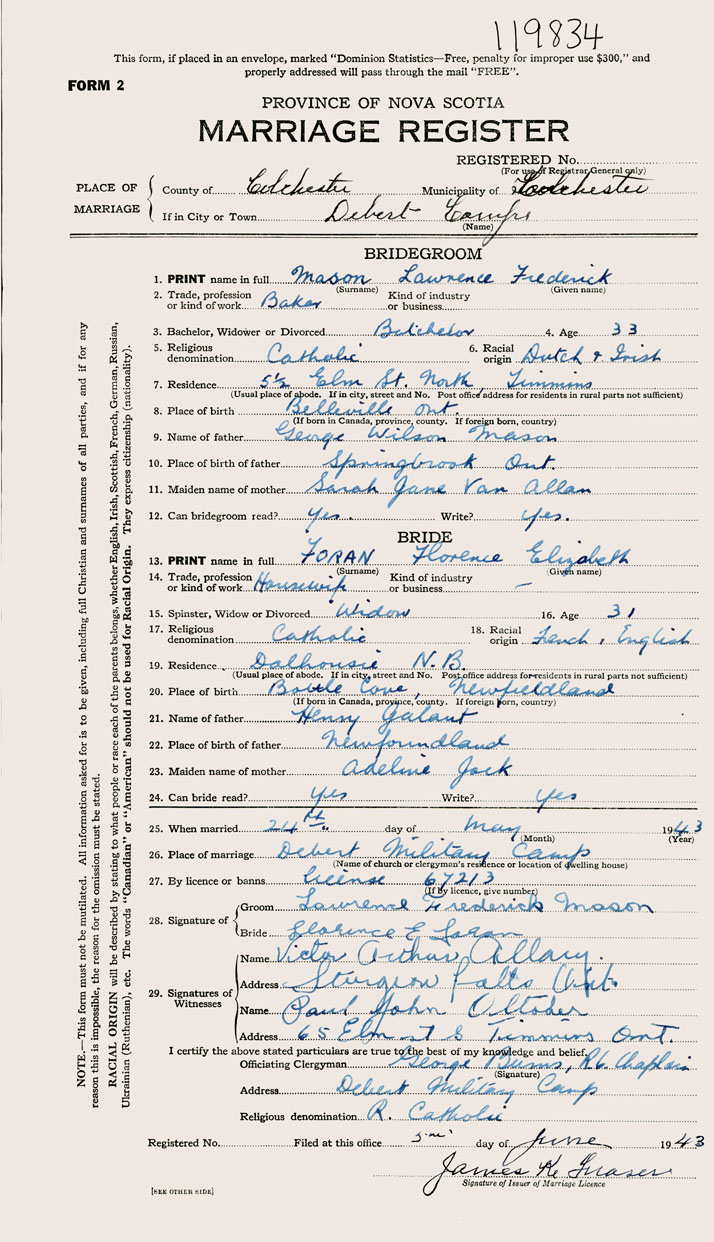 119834
This form, if placed in an envelope, marked “Dominion Statistics—Free, penalty for improper use $300,” and
properly addressed will pass through the mail “FREE”.
FORM 2
PROVINCE OF NOVA SCOTIA
MARRIAGE REGISTER
REGISTERED No.
(For use of Registrar General only)
PLACE OF MARRIAGE
County of Colchester Municipality of Colchester
If in City or Town Debert Camp
(Name)
BRIDEGROOM
1. PRINT name in full Mason Lawrence Frederick
(Surname) (Given name)
2. Trade, profession or kind of work Baker Kind of industry or business
3. Bachelor, Widower or Divorced Batchelor 4. Age 33
5. Religious denomination Catholic 6. Racial origin Dutch & Irish
7. Residence 5½ Elm St. North, Timmins
(Usual place of abode. If in city, street and No. Post office address for residents in rural parts not sufficient)
8. Place of birth Belleville Ont.
(If born in Canada, province, county. If foreign born, country)
9. Name of father George Wilson Mason
10. Place of birth of father Springbrook Ont.
11. Maiden name of mother Sarah Jane Van Allan
12. Can bridegroom read? Yes. Write? Yes.
BRIDE
13. PRINT name in full FORAN Florence Elizabeth
(Surname) (Given name)
14. Trade, profession or kind of work Housewife Kind of industry or business —
15. Spinster, Widow or Divorced Widow 16. Age 31
17. Religious denomination Catholic 18. Racial origin French, English
19. Residence Dalhousie N.B.
(Usual place of abode. If in city, street and No. Post office address for residents in rural parts not sufficient)
20. Place of birth Cove, Newfieldland
(If born in Canada, province, county. If foreign born, country)
21. Name of father Henry Galant
22. Place of birth of father Newfoundland
23. Maiden name of mother Adeline Jack
24. Can bride read? Yes Write? Yes
25. When married 24th day of May 1943
(Month) (Year)
26. Place of marriage Debert Military Camp
(Name of church or clergyman's residence or location of dwelling house)
27. By licence or banns License 67213
(If by licence, give number)
28. Signature of
Groom Lawrence Frederick Mason
Bride Florence E Foran
29. Signatures of Witnesses
Name Victor Arthur Allary.
Address Sturgeon Falls Ont.
Name Paul John
Address 65 Elm st S Timmins Ont.
I certify the above stated particulars are true to the best of my knowledge and belief.
Officiating Clergyman George Burns, R.C. Chaplain
(Signature)
Address Debert Military Camp
Religious denomination R. Catholic
Registered No. Filed at this office 5 day of June 1943
James K. Fraser
Signature of Issuer of Marriage Licence
[SEE OTHER SIDE]
NOTE.—This form must not be mutilated. All information asked for is to be given, including full Christian and surnames of all parties, and if for any
reason this is impossible, the reason for the omission must be stated.
RACIAL ORIGIN will be described by stating to what people or race each of the parents belongs, whether English, Irish, Scottish, French, German, Russian,
Ukrainian (Ruthenian), etc. The words “Canadian” or “American” should not be used for Racial Origin. They express citizenship (nationality).